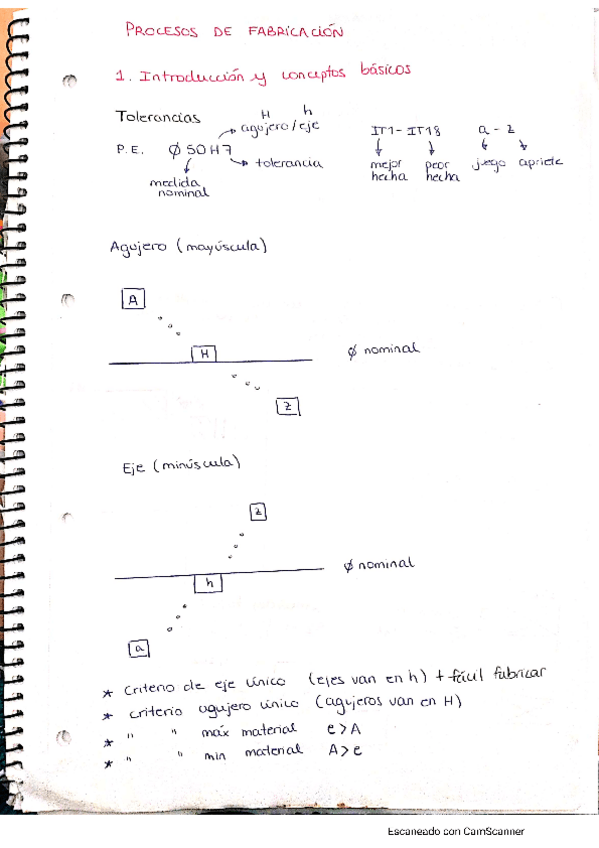 PROCESOS DE FABRICACIÓN
1. Introducción y conceptos básicos
Tolerancias
H h
agujero/eje
P.E. Ø 50H7
tolerancia
medida
nominal
IT1 - IT18
mejor hecha peor hecha
a - z
juego apriete
Agujero (mayúscula)
A
H
Ø nominal
Z
Eje (minúscula)
z
Ø nominal
h
a
* Criterio de eje único (ejes van en h) + fácil fabricar
* criterio agujero único (agujeros van en H)
* " " máx material e>A
* " " min material A>e
Escaneado con CamScanner